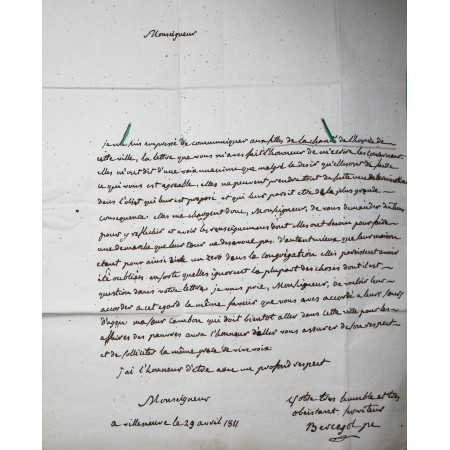 Monseigneur
je me suis empressé de communiquer aux filles de la charité de l'hospice de
cette ville, la lettre que vous m'aves fait l'honneur de m'ecrire les concernant
elles m'ont dit d'une voix unanime que malgré le desir qu'elles ont de faire
ce qui vous est agreable, elles ne peuvent prendre tout de suite une determination
dans l'objet qui leur est proposé et qui leur paroit etre de la plus grande
consequence. elles me chargent donc, Monseigneur, de vous demander du tems
pour y reflechir et avoir les renseignemens dont elles ont besoin pour faire
une demarche que leur cœur ne desavoue pas. d'autant mieux que leur maison
etant pour ainsi dire un zero dans la congregation elles paroissent avoir
été oubliées en sorte quelles ignorent la plupart des choses dont il est
question dans votre lettre. je vous prie, Monseigneur, de vouloir leur
accorder a cet egard la même faveur que vous aves accordé a leurs sœurs
d'agen ma sœur Cambon qui doit bientot aller dans cette ville pour les
affaires des pauvres aura l'honneur d'aller vous assurer de son respect
et de solliciter la même grace de vive voix
j'ai l'honneur d'etre avec un profond respect
Monseigneur
Votre tres humble et tres
obeissant serviteur
a villeneuve le 29 avril 1811